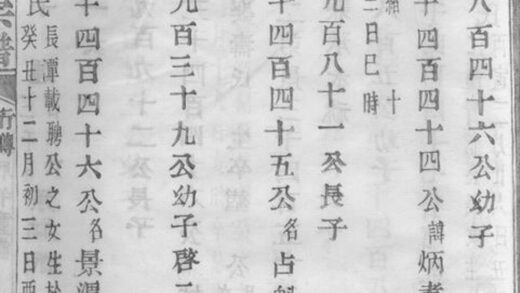 八百四十六公幼子
十四百四十四公諱炳
十
日巳時
九百八十一公長子
十四百四十五公名占
九百三十九公幼子啓
十四百四十六公名景
長潭載騁公之女生於
氏癸丑十二月初三日酉
譜 行傳